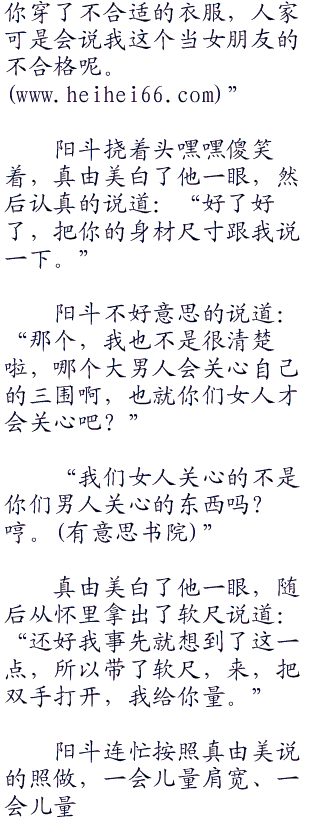 你穿了不合适的衣服，人家
可是会说我这个当女朋友的
不合格呢。
(www.heihei66.com)”
阳斗挠着头嘿嘿傻笑
着，真由美白了他一眼，然
后认真的说道：“好了好
了，把你的身材尺寸跟我说
一下。”
阳斗不好意思的说道：
“那个，我也不是很清楚
啦，哪个大男人会关心自己
的三围啊，也就你们女人才
会关心吧？”
“我们女人关心的不是
你们男人关心的东西吗？
哼。(有意思书院)”
真由美白了他一眼，随
后从怀里拿出了软尺说道：
“还好我事先就想到了这一
点，所以带了软尺，来，把
双手打开，我给你量。”
阳斗连忙按照真由美说
的照做，一会儿量肩宽、一
会儿量